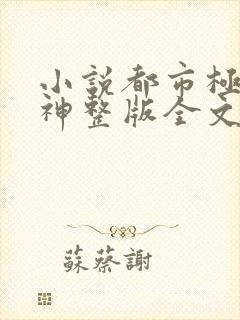 小説都市極
神整版全文
蘇蔡謝